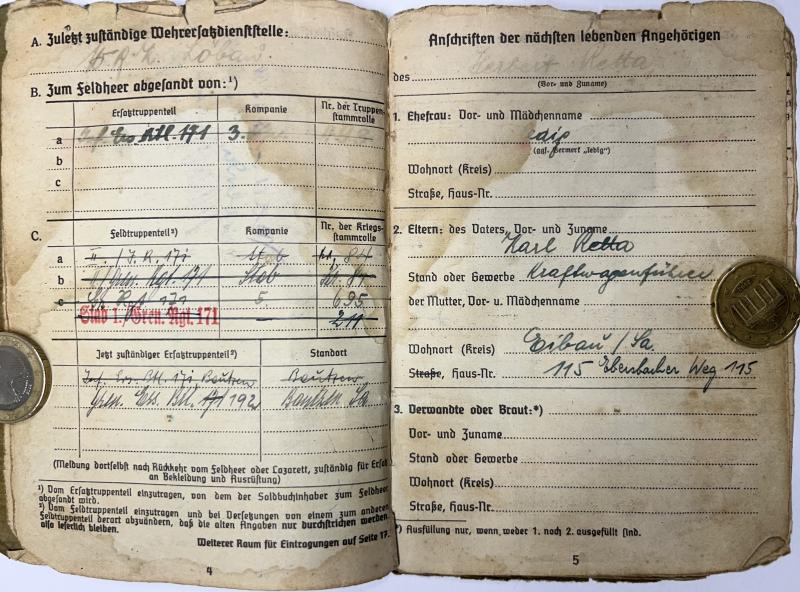 A. Zuletzt zuständige Wehrersatzdienststelle:
W. B. K. Löbau
B. Zum Feldheer abgesandt von:¹)
Ersatztruppenteil Kompanie Nr. der Truppenstammrolle
a Inf. Ers. Btl. 171 3.
b
c
C. Feldtruppenteil²) Kompanie Nr. der Kriegsstammrolle
a II. / J. R. 171 Stab Nr. 84
b II/Gren. Rgt. 171 Stab Nr. 84
c Gr. Rgt. 171 5 695
Stab I./Gren. Rgt. 171 – 211
Jetzt zuständiger Ersatztruppenteil²) Standort
Inf. Ers. Btl. 171 Bautzen Bautzen
Gren. Ers. Btl. 171 192 Bautzen Sa.
(Meldung dortselbst nach Rückkehr vom Feldheer oder Lazarett, zuständig für Ersatz
an Bekleidung und Ausrüstung)
¹) Vom Ersatztruppenteil einzutragen, von dem der Soldbuchinhaber zum Feldheer
abgesandt wird.
²) Vom Feldtruppenteil einzutragen und bei Versetzungen von einem zum anderen
Feldtruppenteil derart abzuändern, daß die alten Angaben nur durchstrichen werden,
also leserlich bleiben.
Weiterer Raum für Eintragungen auf Seite 17.
4
Anschriften der nächsten lebenden Angehörigen
des Herbert Retta
(Vor- und Zuname)
1. Ehefrau: Vor- und Mädchenname
(ggf. Vermerk „ledig")
Wohnort (Kreis)
Straße, Haus-Nr.
2. Eltern: des Vaters, Vor- und Zuname
Karl Retta
Stand oder Gewerbe Kraftwagenführer
der Mutter, Vor- u. Mädchenname
Wohnort (Kreis) Eibau / Sa.
Straße, Haus-Nr. 115 Ebersbacher Weg 115
3. Verwandte oder Braut:*)
Vor- und Zuname
Stand oder Gewerbe
Wohnort (Kreis)
Straße, Haus-Nr.
*) Ausfüllung nur, wenn weder 1. noch 2. ausgefüllt sind.
5